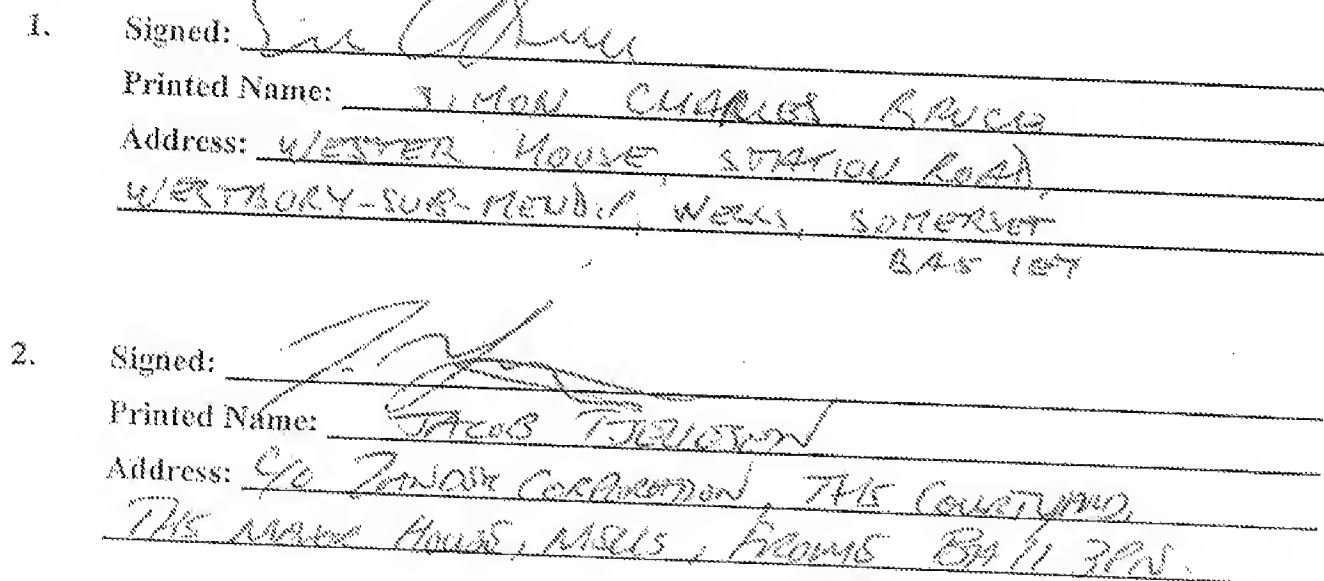 1. Signed:
Printed Name: SIMON CHARLES BRUCE
Address: WESTER HOUSE, STATION ROAD,
WESTBURY-SUB-MENDIP, WELLS, SOMERSET
BA5 1EY
2. Signed:
Printed Name: JACOB
Address: C/O CORPORATION, THE COURTYARD,
THE MANOR HOUSE, MELLS, FROME BA11 3PN.